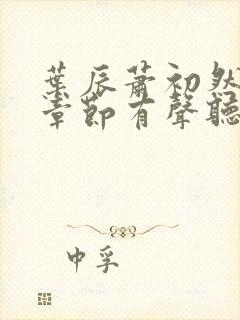 葉辰蕭初然
章節有聲聽
中孚